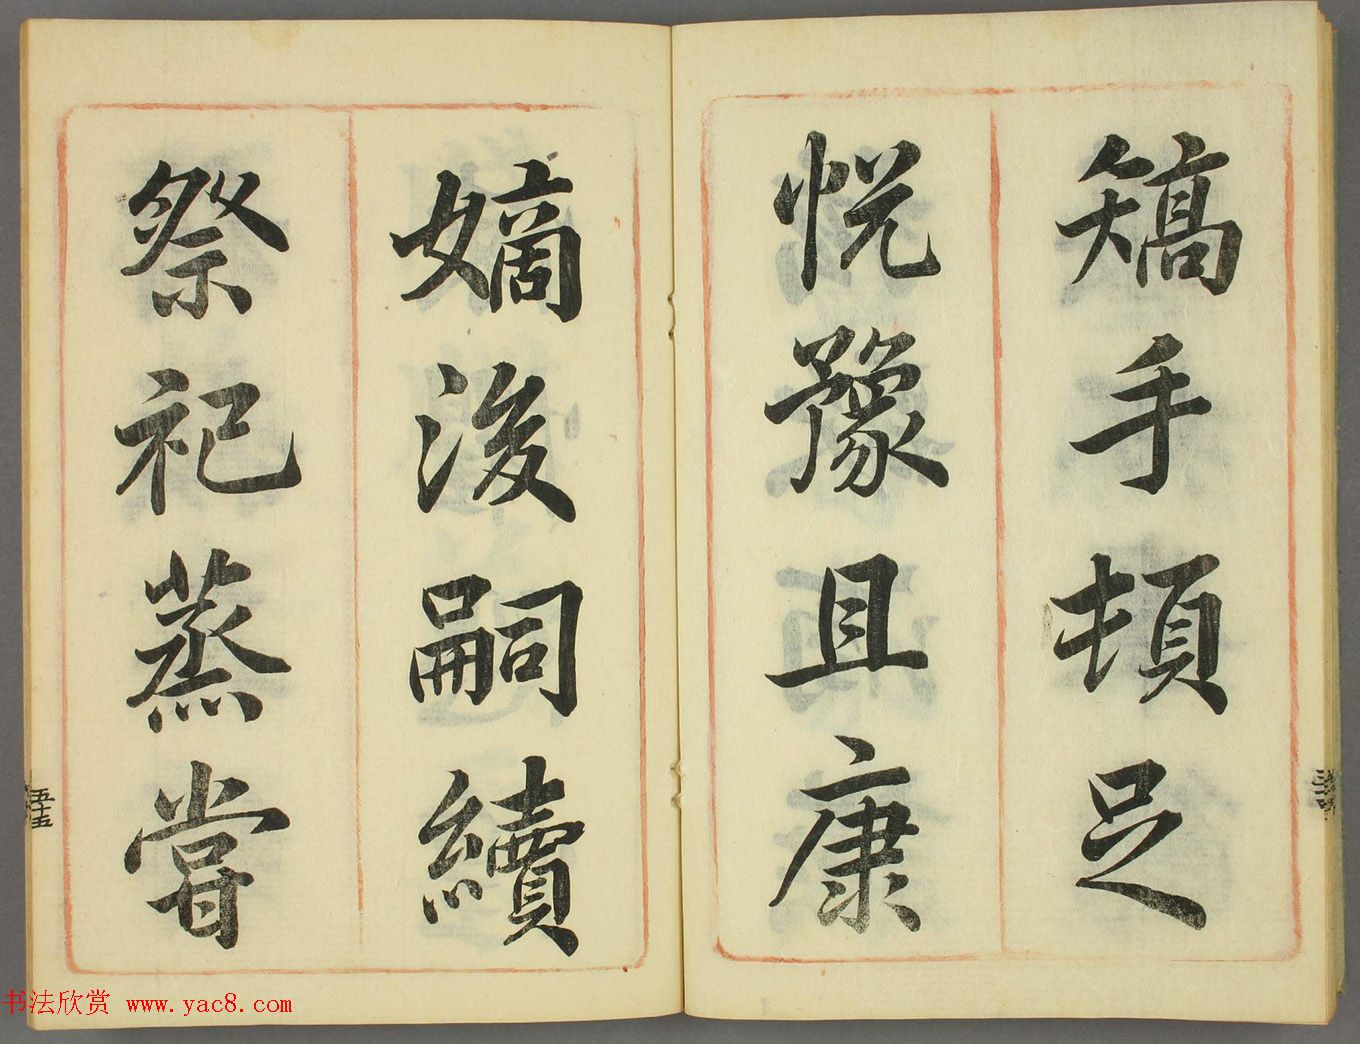 矯手頓足
悅豫且康
嫡後嗣續
祭祀蒸嘗
五十五
书法欣赏 www.yac8.com